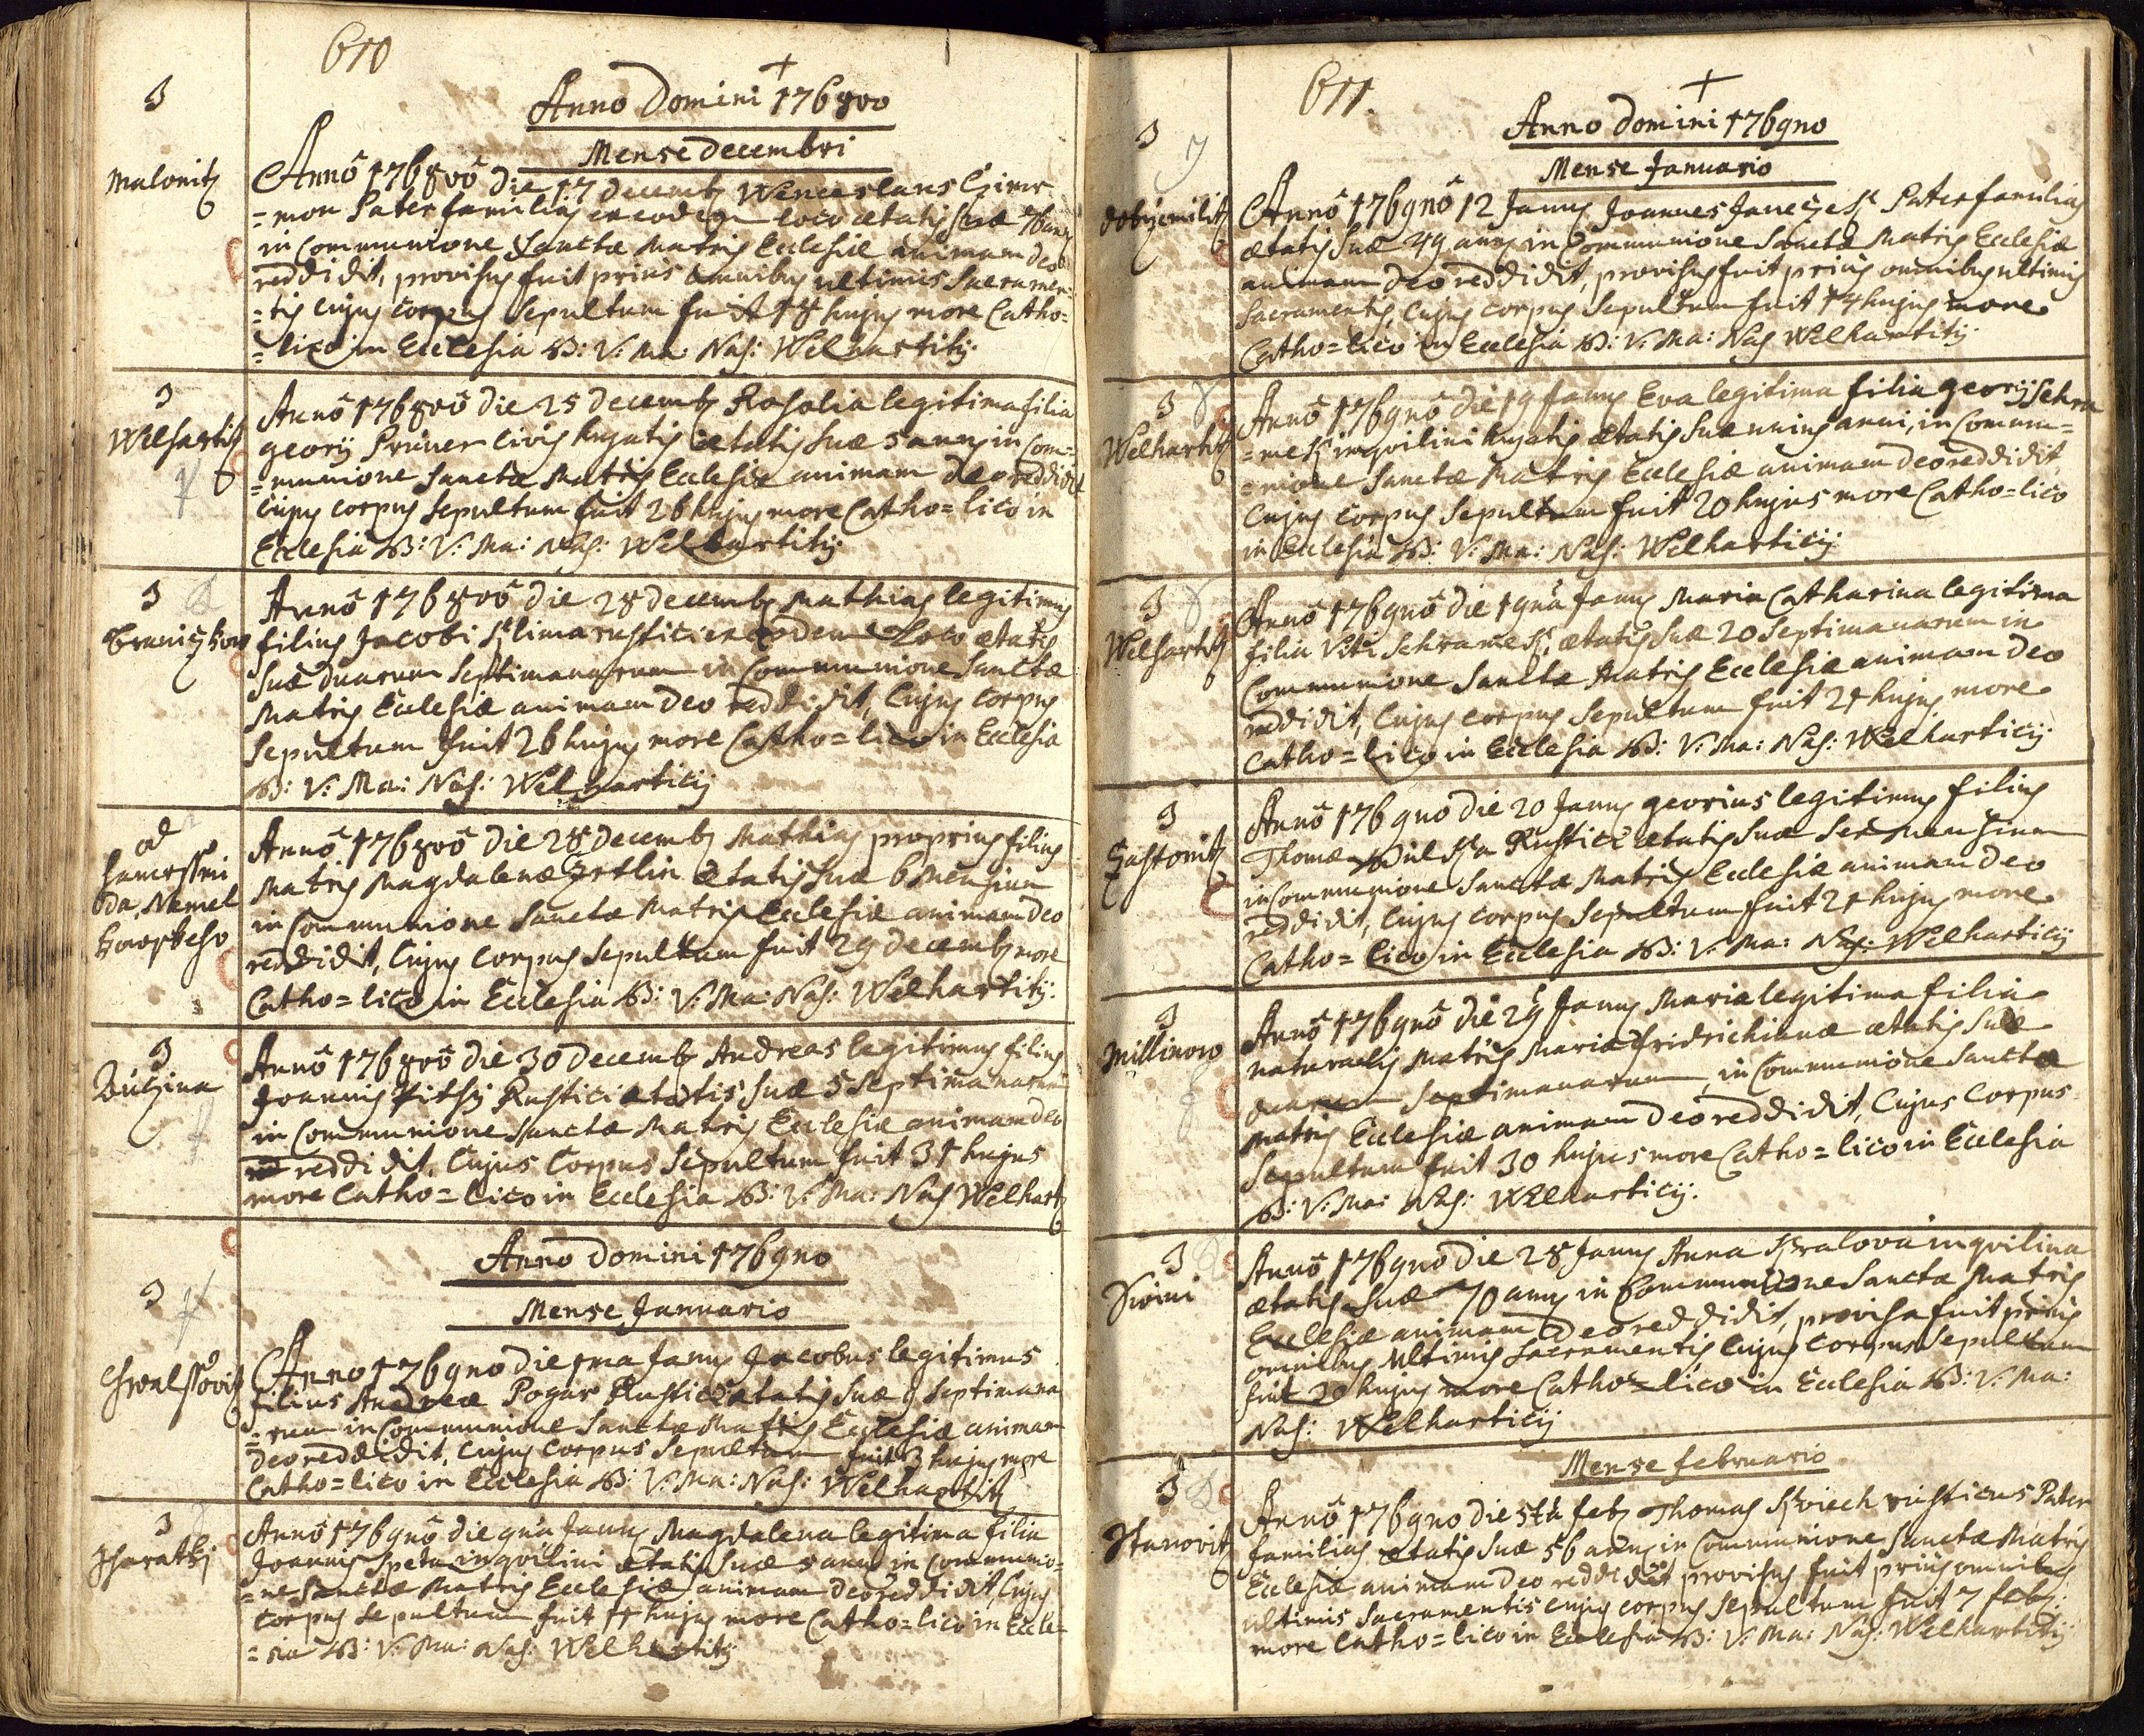 610
+
Anno Domini 1768vo
Mense decembri
3
Malonitz
Annô 1768vô die 17 decemb Wenceslaus
=mon Pater familias ex eodem loco ætatis suæ 76 annis
in Communione Sanctæ Matris Ecclesiæ animam deo
reddidit, provisus fuit prius omnibus ultimis Sacramen=
=tis Cujus Corpus Sepultum fuit 18 hujus more Catho=
=lico in Ecclesia B: V: Ma: Nas: Welhartitij
3
Welhartitz
Annô 1768vô die 25 decemb Rosalia legitima filia
georij Prüner Civis hujatis ætatis suæ 5 annis in Com=
=munione Sanctæ Matris Ecclesiæ animam deo reddidit
Cujus Corpus Sepultum fuit 26 hujus more Catho=lico in
Ecclesia B: V: Ma: Nas: Welhartitij
3
Braniczkow
Annô 1768vô die 28 decemb Mathias legitimus
filius Jacobi Klima rustici ex eodem Loco ætatis
suæ duarum Septimanarum in Communione Sanctæ
Matris Ecclesiæ animam Deo reddidit, Cujus Corpus
Sepultum fuit 26 hujus more Catho=lico in Ecclesia
B: V: Ma: Nas: Welharticij
od
da Nemel
Annô 1768vô die 28 decemb Mathias proprius filius
Matris Magdalenæ ætatis suæ 6 Mensium
in Communione Sanctæ Matris Ecclesiæ animam deo
reddidit, Cujus Corpus Sepultum fuit 29 decemb more
Catho=lico in Ecclesia B: V: Ma: Nas: Welhartitij.
3
Annô 1768vô die 30 decemb Andreas legitimus filius
Joannis Rustici ætatis suæ 5 Septimanarum
in Communione Sanctæ Matris Ecclesiæ animam deo
reddidit, Cujus Corpus Sepultum fuit 31 hujus
more Catho=lico in Ecclesia B: V: Ma: Nas Welhart
Anno Domini 176gno
Mense Januario
3
Anno 176gno die 1ma Janus Jacobus legitimus
filius Andreæ Pogar Rustici ætatis suæ 9 Septimana
=rum in Communione Sanctæ Matris Ecclesiæ animam
deo reddidit, Cujus Corpus Sepultum fuit 3 hujus more
Catho=lico in Ecclesia B: V: Ma: Nas: Welhartitz
3
Annô 176gnô die gna Janus Magdalena legitima filia
Joannis Speta inquilini ætatis suæ 5 annis in Communio=
=ne Sanctæ Matris Ecclesiæ animam deo reddidit, Cujus
Corpus Sepultum fuit 11 hujus more Catho=lico in Eccle=
=sia B: V: Ma: Nas: Welhartitij
611.
+
Anno domini 176gno
Mense Januario
3
Annô 176gnô 12 Janus Joannes Pater familias
ætatis suæ 49 annis in Communione Sanctæ Matris Ecclesiæ
animam deo reddidit, provisus fuit prius omnibus ultimis
Sacramentis, Cujus Corpus Sepultum fuit 14 hujus more
Catho=lico in Ecclesia B: V: Ma: Nas Welhartitij
3
Welhartitz
Annô 176gnô die 19 Janus Eva legitima filia georij Schra
=mek inquilini hujatis ætatis suæ unius anni, in Commu=
=nione Sanctæ Matris Ecclesiæ animam deo reddidit
Cujus Corpus Sepultum fuit 20 hujus more Catho=lico
in Ecclesia B: V: Ma: Nas: Welharticij
3
Welhartitz
Annô 176gnô die 19na Janus Maria Catharina legitima
filia Viti Schramek, ætatis suæ 20 Septimanarum in
Communione Sanctæ Matris Ecclesiæ animam deo
reddidit, Cujus Corpus Sepultum fuit 21 hujus more
Catho=lico in Ecclesia B: V: Ma: Nas: Welharticij
3
Annô 176gno die 20 Janus georius legitimus filius
Thomæ Rustici ætatis suæ sex Mensium
in Communione Sanctæ Matris Ecclesiæ animam deo
reddidit, Cujus Corpus Sepultum fuit 21 hujus more
Catho=lico in Ecclesia B: V: Ma: Nas: Welharticij
3
Millinow
Annô 176gnô die 29 Janus Maria legitima filia
naturalis Matris Mariæ Fridrichianæ ætatis suæ
duarum Septimanarum, in Communione Sanctæ
Matris Ecclesiæ animam deo reddidit, Cujus Corpus
Sepultum fuit 30 hujus more Catho=lico in Ecclesia
B: V: Ma: Nas: Welharticij.
3
Annô 176gno die 28 Janus Anna Kralova inquilina
ætatis suæ 70 annis in Communione Sanctæ Matris
Ecclesiæ animam Deo reddidit, provisa fuit prius
omnibus Ultimis Sacramentis Cujus Corpus Sepultum
fuit 30 hujus more Catho=lico in Ecclesia B: V: Ma:
Nas: Welharticij
Mense februario
3
Annô 176gno die 5ta feb Thomas rusticus Pater
familias ætatis suæ 56 annis in Communione Sanctæ Matris
Ecclesiæ animam deo reddidit provisus fuit prius omnibus
ultimis Sacramentis cujus corpus Sepultum fuit 7 feb:
more Catho=lico in Ecclesia B: V: Ma: Nas: Welhartitij